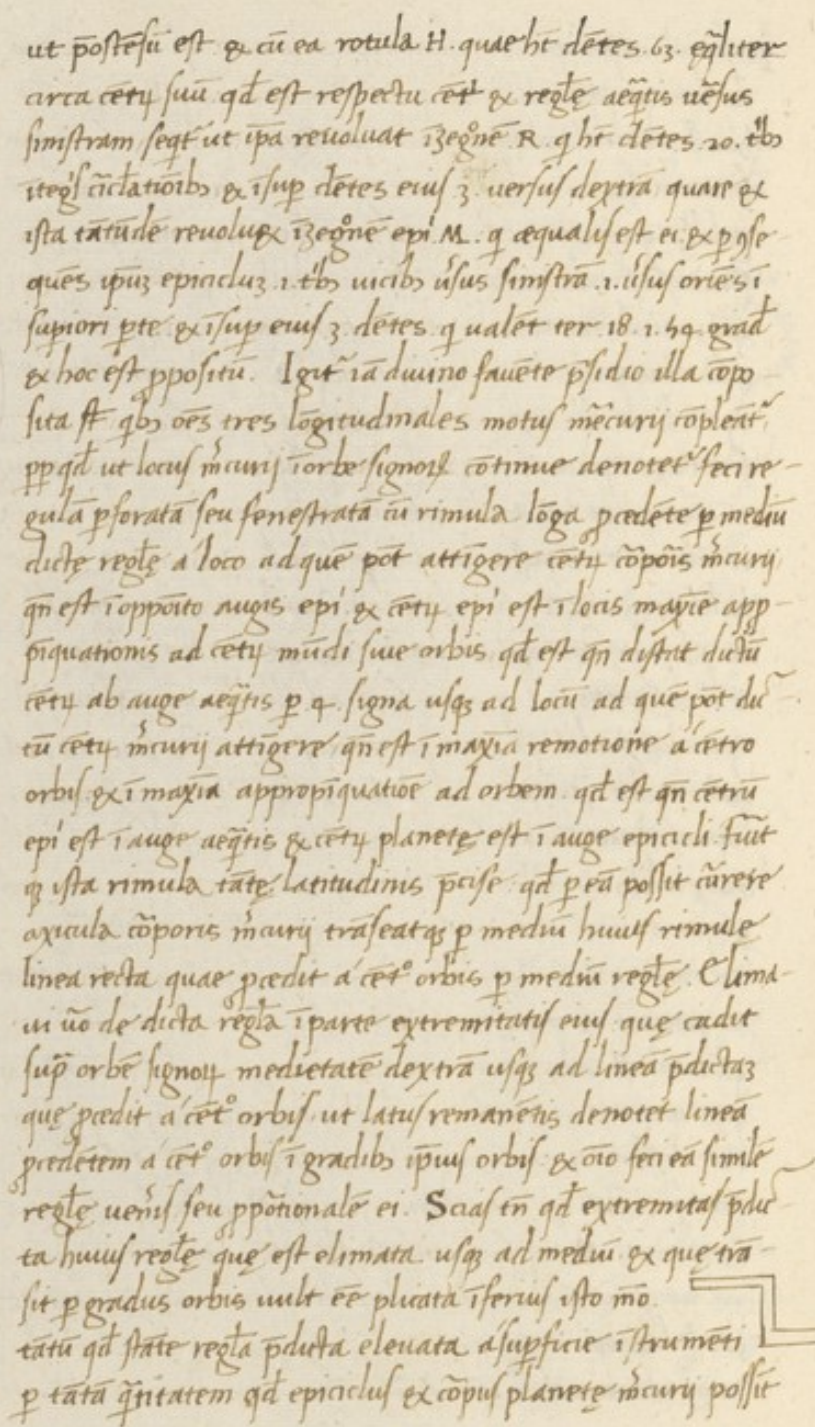 ut p̄ostēsū est & cū ea rotula H. quae ht̄ dētes 63. eq̄liter
circa cētꝝ suū qd̄ est respectu cēt' & regl̄ę aeq̄tis ūsus
sinistram seqt' ut ip̄a revoluat R qi ht̄ dētes 20.
& īsup̄ dētes eius 3 versus dextrā quare &
ista tātūdē revolu& epi' M. qi aequalis est ei & ꝑ ꝯse-
quēs ip̄uꝫ epicicluꝫ .1. vicibꝫ v̄sus sinistrā .1. v̄sus oriēs ī
supiori ꝑte & īsup̄ eius 3 dētes qi valēt ter 18.1.54 grad̄
& hoc est ꝓpositū. Igit' iā divino favēte p̄sidio illa cōpo
sita st̄ qibꝫ oēs tres lōgitudinales motus mērcurij cōpleāt'
ꝓp qd̄ ut locus m̄curij ī orbe signoꝝ cōtinue denotet' feci re-
gulā ꝑforatā seu fenestratā cū rimula lōga ꝓcedēte ꝑ mediū
dictę regl̄ę a' loco ad quē pōt attīgere cētꝝ cōꝑōis m̄curij
qn̄ est ī oppōito augis epi' & cētꝝ epi' est ī locis maxīe apꝓ-
p̄iquationis ad cētꝝ mūdi sive orbis qd̄ est qn̄ distat dictū
cētꝝ ab auge aeq̄tis ꝑ 4 signa usqꝫ ad locū ad quē pōt dic̄-
tū cētꝝ m̄curij attīgere qn̄ est ī maxīa remotiōe a' cētro
orbis & ī maxīa appropīquatiōe ad orbem qd̄ est qn̄ cētrū
epi' est ī auge aeq̄tis & cētꝝ planetę est ī auge epicicli fuīt
qꝫ ista rimula tātę latitudinis p̄cise qd̄ ꝑ eā possit cūrere
axicula cōꝑoris m̄curij trāseatqꝫ ꝑ mediū huius rimulę
linea recta quae ꝓcedit a' cēt° orbis ꝑ mediū regl̄ę. Elima-
vi v̄o de dicta regl̄a ī parte extremitatis eius quę cadit
sup̄ orbē signoꝝ medietatē dextrā usqꝫ ad lineā p̄dictaꝫ
quę ꝓcedit a' cēt° orbis ut latus remanētis denotet lineā
ꝓcedētem a' cēt° orbis ī gradibꝫ ip̄ius orbis & oīo feci eā similē
regl̄ę vene͛is seu ꝓpōtionalē ei. Scias tn̄ qd̄ extremitas p̄dic̄-
ta huius regl̄ę quę est elimata usqꝫ ad mediū & quę trā-
sit ꝑ gradus orbis vult eē plicata īferius isto mō
tātū qd̄ stāte regl̄a p̄dicta elevata a' supficie īstrumēti
ꝑ tātā q̄titatem qd̄ epiciclus & cōpus planetę m̄curij possit